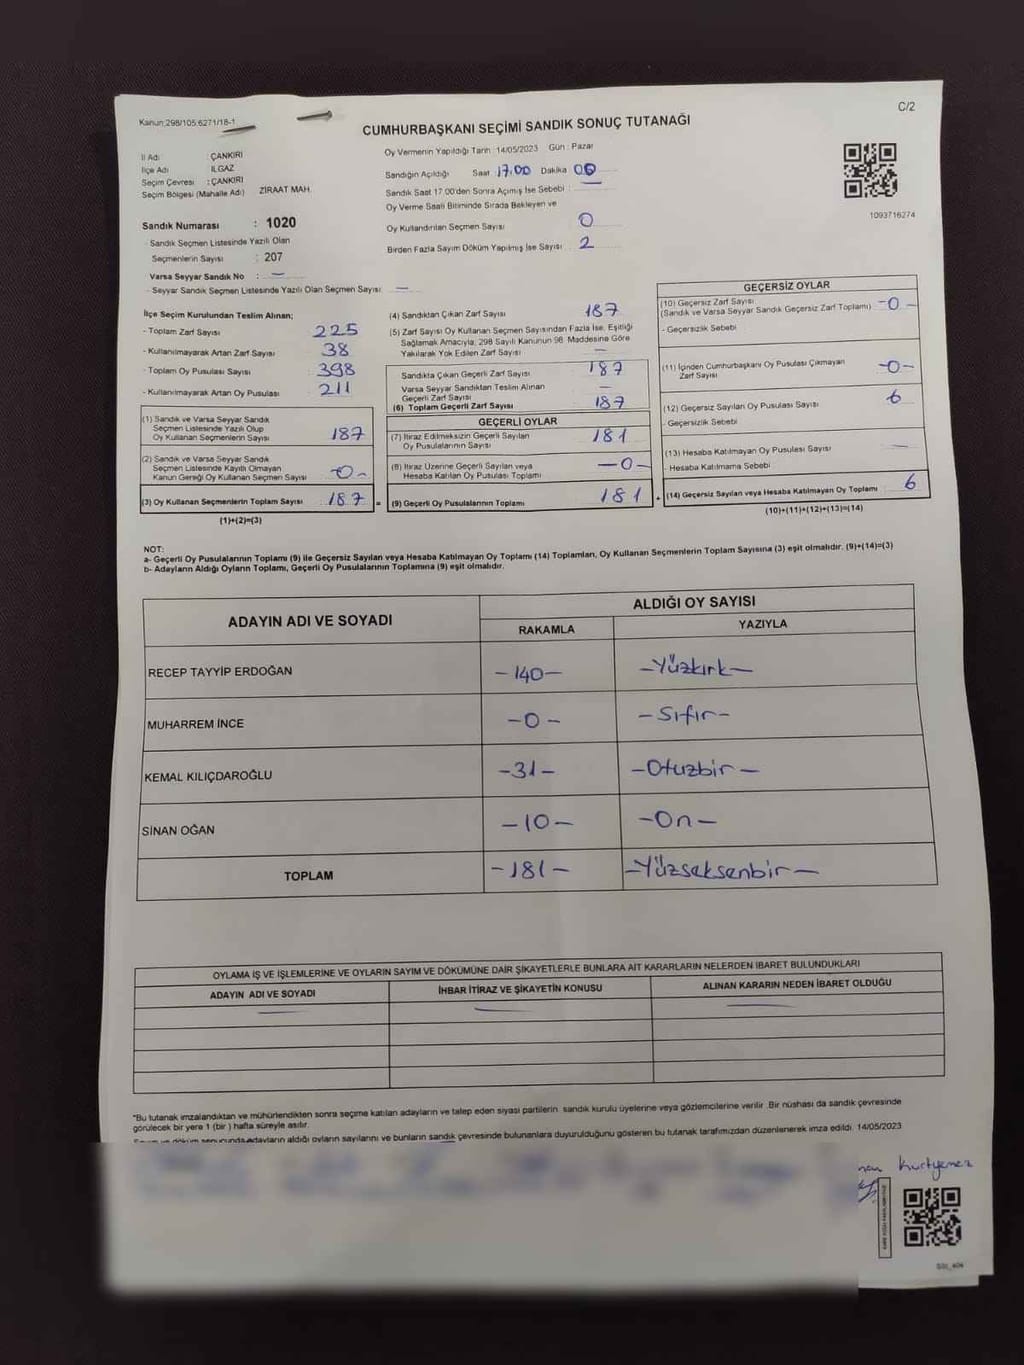 Kanun:298/105 6271/18-1
C/2
CUMHURBAŞKANI SEÇİMİ SANDIK SONUÇ TUTANAĞI
İl Adı : ÇANKIRI
İlçe Adı : ILGAZ
Seçim Çevresi : ÇANKIRI
Seçim Bölgesi (Mahalle Adı) ZİRAAT MAH.
Sandık Numarası : 1020
- Sandık Seçmen Listesinde Yazılı Olan
Seçmenlerin Sayısı : 207
Varsa Seyyar Sandık No : —
- Seyyar Sandık Seçmen Listesinde Yazılı Olan Seçmen Sayısı : —
Oy Vermenin Yapıldığı Tarih : 14/05/2023 Gün : Pazar
Sandığın Açıldığı Saat : 17:00 Dakika : 00
Sandık Saat 17.00'den Sonra Açılmış İse Sebebi : —
Oy Verme Saati Bitiminde Sırada Bekleyen ve
Oy Kullandırılan Seçmen Sayısı : 0
Birden Fazla Sayım Döküm Yapılmış İse Sayısı : 2
1093716274
İlçe Seçim Kurulundan Teslim Alınan;
- Toplam Zarf Sayısı : 225
- Kullanılmayarak Artan Zarf Sayısı : 38
- Toplam Oy Pusulası Sayısı : 398
- Kullanılmayarak Artan Oy Pusulası : 211
(1) Sandık ve Varsa Seyyar Sandık
Seçmen Listesinde Yazılı Olup
Oy Kullanan Seçmenlerin Sayısı : 187
(2) Sandık ve Varsa Seyyar Sandık
Seçmen Listesinde Kayıtlı Olmayan
Kanun Gereği Oy Kullanan Seçmen Sayısı : -0-
(3) Oy Kullanan Seçmenlerin Toplam Sayısı : 187 =
(1)+(2)=(3)
(4) Sandıktan Çıkan Zarf Sayısı : 187
(5) Zarf Sayısı Oy Kullanan Seçmen Sayısından Fazla İse, Eşitliği
Sağlamak Amacıyla, 298 Sayılı Kanunun 98. Maddesine Göre
Yakılarak Yok Edilen Zarf Sayısı : —
Sandıkta Çıkan Geçerli Zarf Sayısı : 187
Varsa Seyyar Sandıktan Teslim Alınan
Geçerli Zarf Sayısı : —
(6) Toplam Geçerli Zarf Sayısı : 187
GEÇERLİ OYLAR
(7) İtiraz Edilmeksizin Geçerli Sayılan
Oy Pusulalarının Sayısı : 181
(8) İtiraz Üzerine Geçerli Sayılan veya
Hesaba Katılan Oy Pusulası Toplamı : -0-
(9) Geçerli Oy Pusulalarının Toplamı : 181 +
GEÇERSİZ OYLAR
(10) Geçersiz Zarf Sayısı : -0-
(Sandık ve Varsa Seyyar Sandık Geçersiz Zarf Toplamı)
- Geçersizlik Sebebi
(11) İçinden Cumhurbaşkanı Oy Pusulası Çıkmayan
Zarf Sayısı : -0-
(12) Geçersiz Sayılan Oy Pusulası Sayısı : 6
- Geçersizlik Sebebi
(13) Hesaba Katılmayan Oy Pusulası Sayısı : —
- Hesaba Katılmama Sebebi
(14) Geçersiz Sayılan veya Hesaba Katılmayan Oy Toplamı : 6
(10)+(11)+(12)+(13)=(14)
NOT:
a- Geçerli Oy Pusulalarının Toplamı (9) ile Geçersiz Sayılan veya Hesaba Katılmayan Oy Toplamı (14) Toplamları, Oy Kullanan Seçmenlerin Toplam Sayısına (3) eşit olmalıdır. (9)+(14)=(3)
b- Adayların Aldığı Oyların Toplamı, Geçerli Oy Pusulalarının Toplamına (9) eşit olmalıdır.
ADAYIN ADI VE SOYADI
ALDIĞI OY SAYISI
RAKAMLA YAZIYLA
RECEP TAYYİP ERDOĞAN -140- -Yüzkırk-
MUHARREM İNCE -0- -Sıfır-
KEMAL KILIÇDAROĞLU -31- -Otuzbir-
SİNAN OĞAN -10- -On-
TOPLAM -181- -Yüzseksenbir-
OYLAMA İŞ VE İŞLEMLERİNE VE OYLARIN SAYIM VE DÖKÜMÜNE DAİR ŞİKAYETLERLE BUNLARA AİT KARARLARIN NELERDEN İBARET BULUNDUKLARI
ADAYIN ADI VE SOYADI İHBAR İTİRAZ VE ŞİKAYETİN KONUSU ALINAN KARARIN NEDEN İBARET OLDUĞU
*Bu tutanak imzalandıktan ve mühürlendikten sonra seçime katılan adayların ve talep eden siyasi partilerin sandık kurulu üyelerine veya gözlemcilerine verilir. Bir nüshası da sandık çevresinde
görülecek bir yere 1 (bir) hafta süreyle asılır.
Sayım ve döküm sonucunda adayların aldığı oyların sayılarını ve bunların sandık çevresinde bulunanlara duyurulduğunu gösteren bu tutanak tarafımızdan düzenlenerek imza edildi. 14/05/2023
Kurtyemez